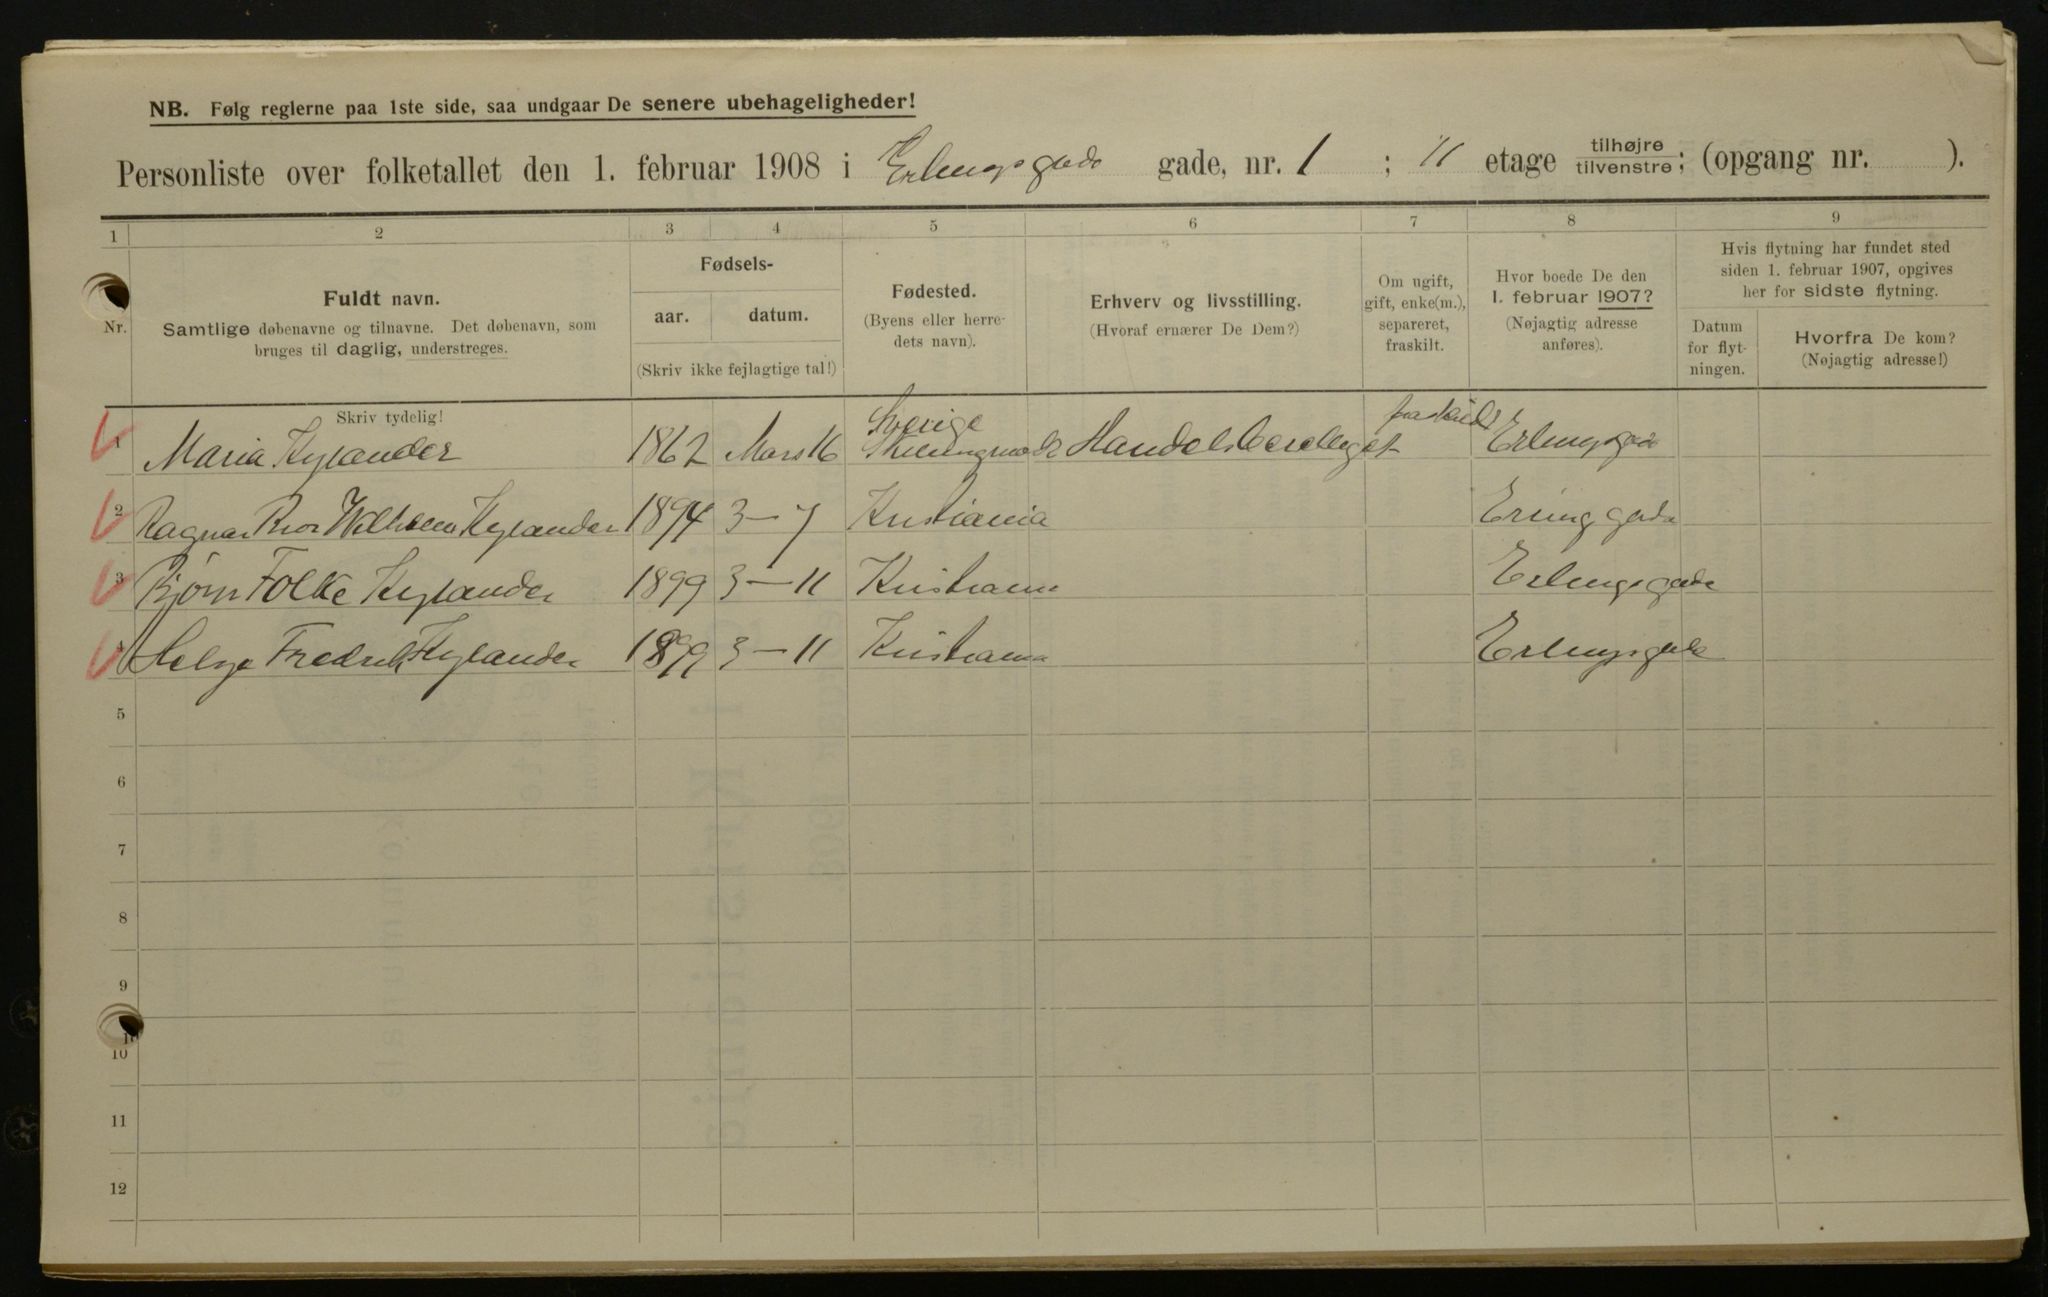 NB. Følg reglerne paa 1ste side, saa undgaar De senere ubehageligheder!
Personliste over folketallet den 1. februar 1908 i Erlingsgade gade, nr. 1 ; II etage tilhøjre/tilvenstre; (opgang nr. ).
1 2 3 4 5 6 7 8 9
Nr.
Fuldt navn.
Samtlige døbenavne og tilnavne. Det døbenavn, som
bruges til daglig, understreges.
Skriv tydelig!
Fødsels-
aar. datum.
(Skriv ikke fejlagtige tal!)
Fødested.
(Byens eller herre-
dets navn).
Erhverv og livsstilling.
(Hvoraf ernærer De Dem?)
Om ugift,
gift, enke(m.),
separeret,
fraskilt.
Hvor boede De den
1. februar 1907?
(Nøjagtig adresse
anføres).
Hvis flytning har fundet sted
siden 1. februar 1907, opgives
her for sidste flytning.
Datum
for flyt-
ningen.
Hvorfra De kom?
(Nøjagtig adresse!)
Sverige fraskildt
1 Maria Kylander 1862 Mars 16 Handelsberettiget Erlingsgade
2 Ragnar Wilhelm Kylander 1894 3-7 Kristiania Erlinggade
3 Bjørn Folke Kylander 1899 3-11 Kristiania Erlingsgade
4 Helge Fredrik Kylander 1899 3-11 Kristiania Erlingsgade
5
6
7
8
9
10
10
11
12